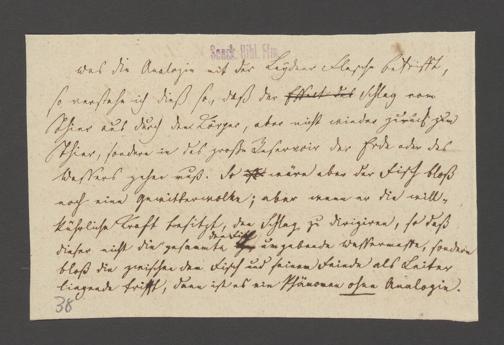 Senck. Bibl. Ffm.
was die Analogie mit der Leydner Flasche betrifft,
so verstehe ich dieß so, daß der Effect des Schlag vom
Thier aus durch den Körper, aber nicht wieder zurück zum
Thier, sondern in das große Reservoir der Erde oder des
Wassers gehen muß. So wäre aber der Fisch bloß
noch eine Gewitterwolke; aber wenn er die will-
kührliche Kraft besitzt, den Schlag zu dirigiren, so daß
den Fisch
dieser nicht die gesammte umgebende Wassermasse, sondern
bloß die zwischen dem Fisch und seinem Feinde als Leiter
liegende trifft, dann ist es ein Phänomen ohne Analogie.
38